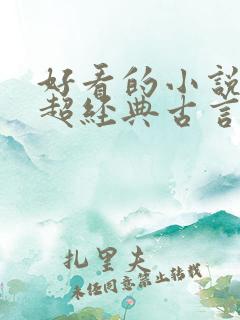 好看的小說
超經典古言
扎里夫
未经同意禁止转载